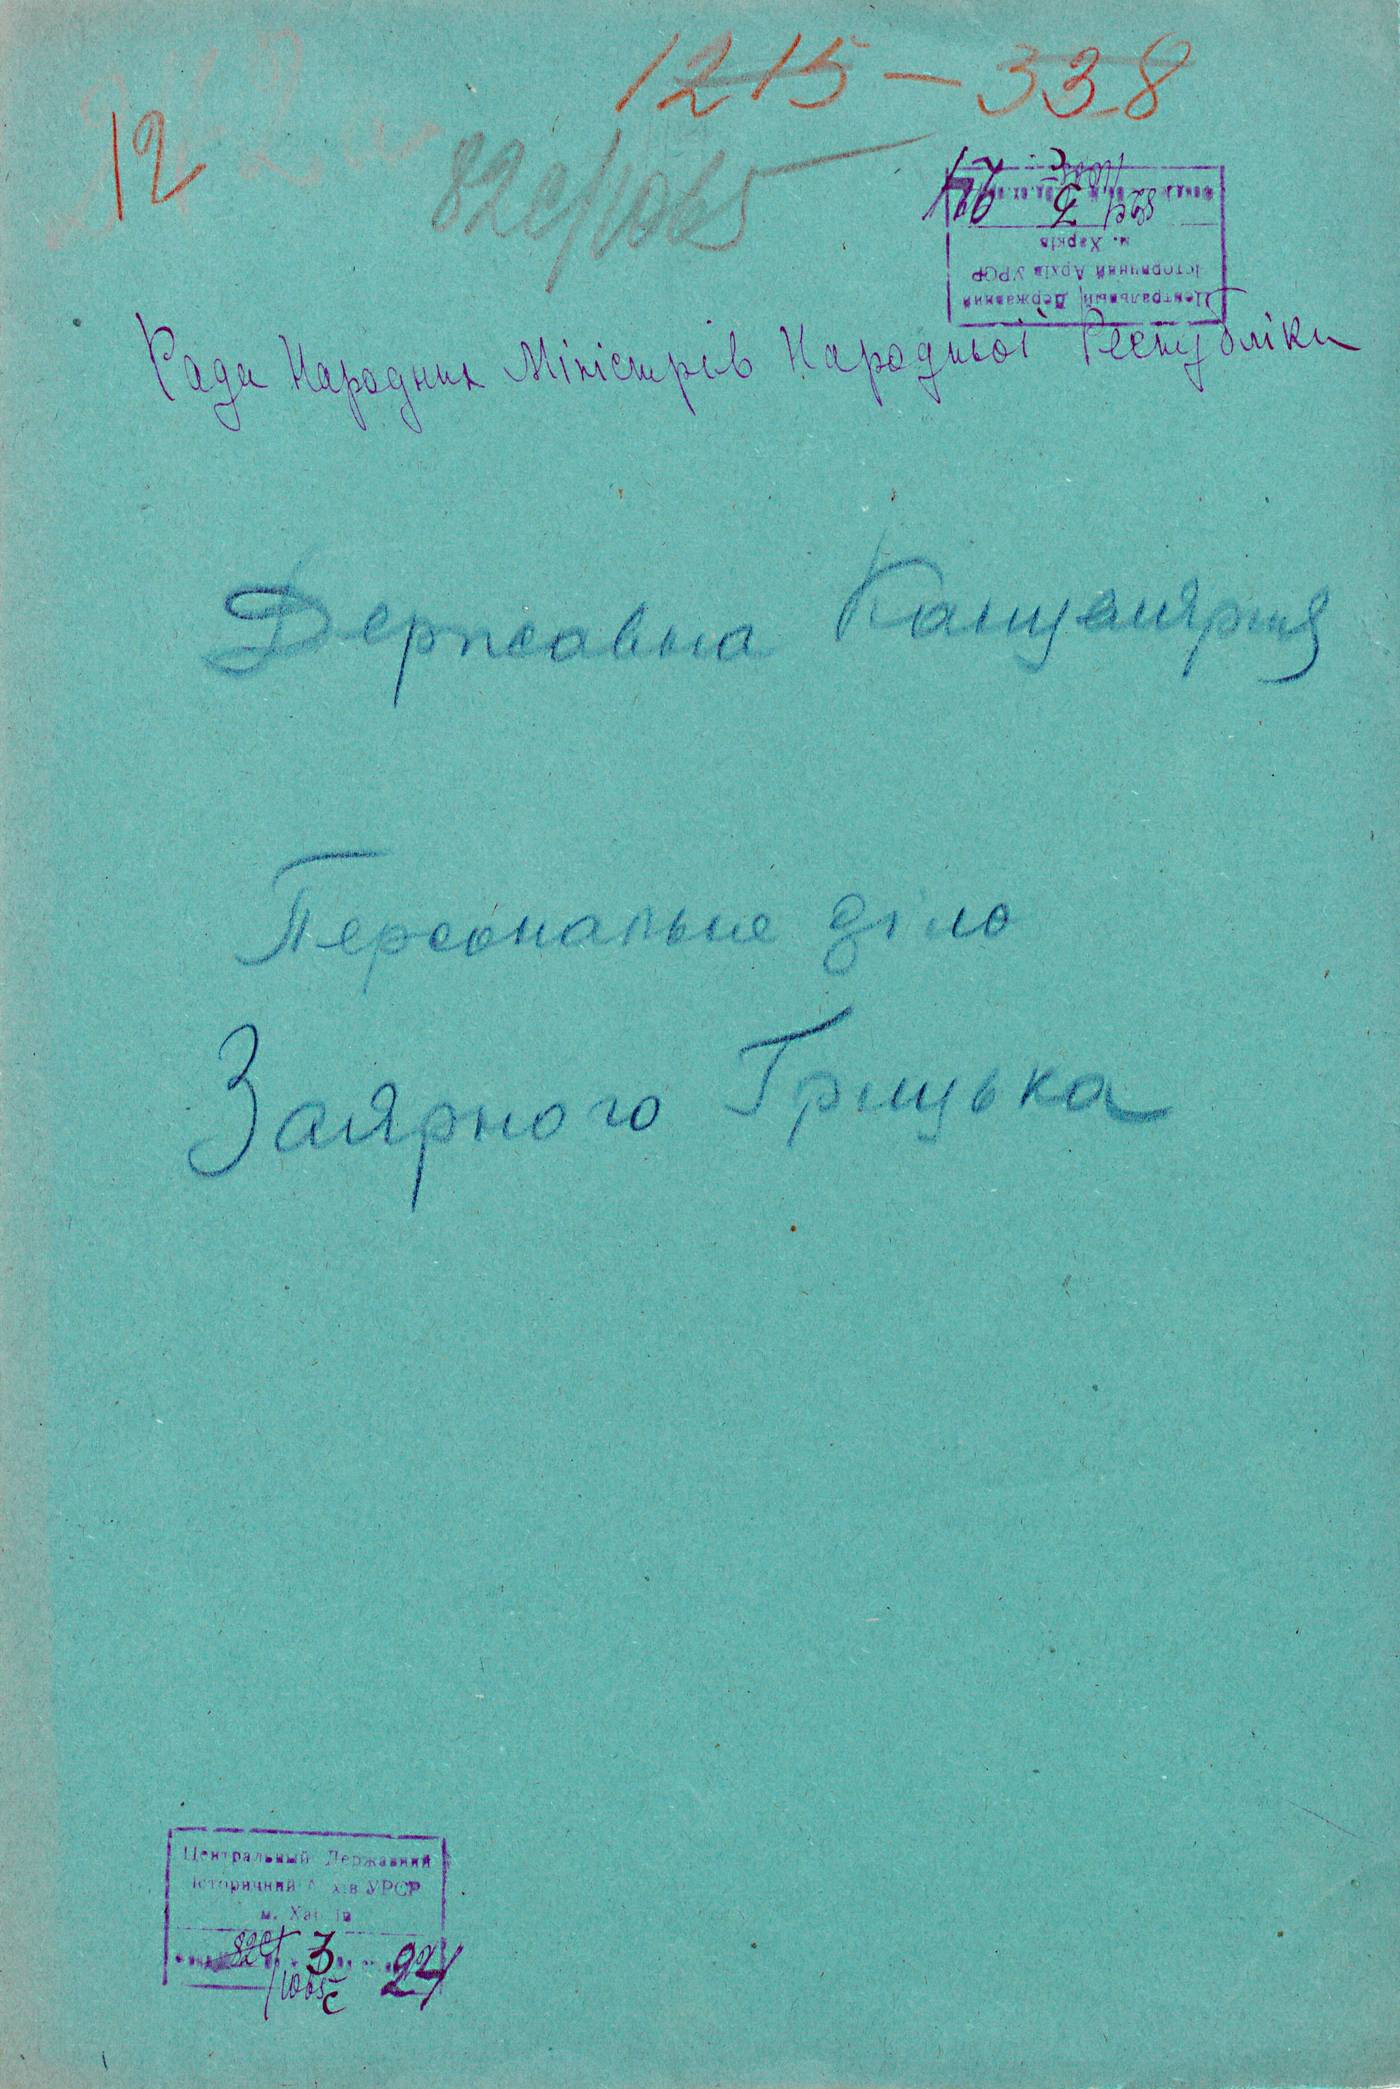 1215 — 338
12
82с/1065
Центральный Державний
історичний Архів УРСР
м. Харків
Фонд 82с/ 3 24
1065с
Рада Народних Міністрів Народньої Республіки
Державна Канцелярия
Персональне діло
Заярного Грицька
Центральный Державний
історичний Архів УРСР
м. Харків
Фонд 82с/ 3 24
/1065с